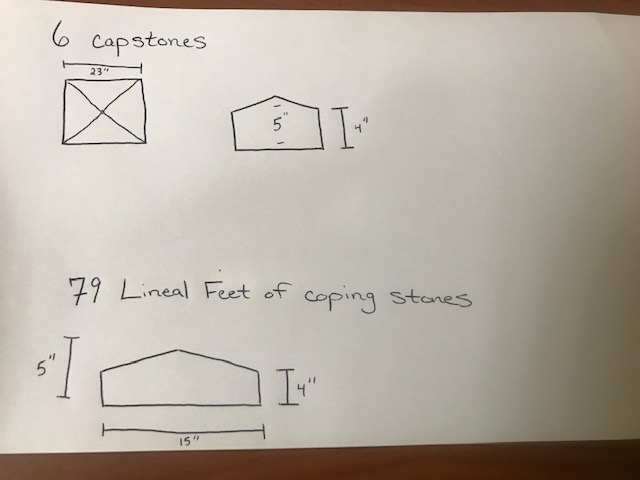 6 capstones
23"
5"
4"
79 Lineal Feet of coping stones
5"
4"
15"